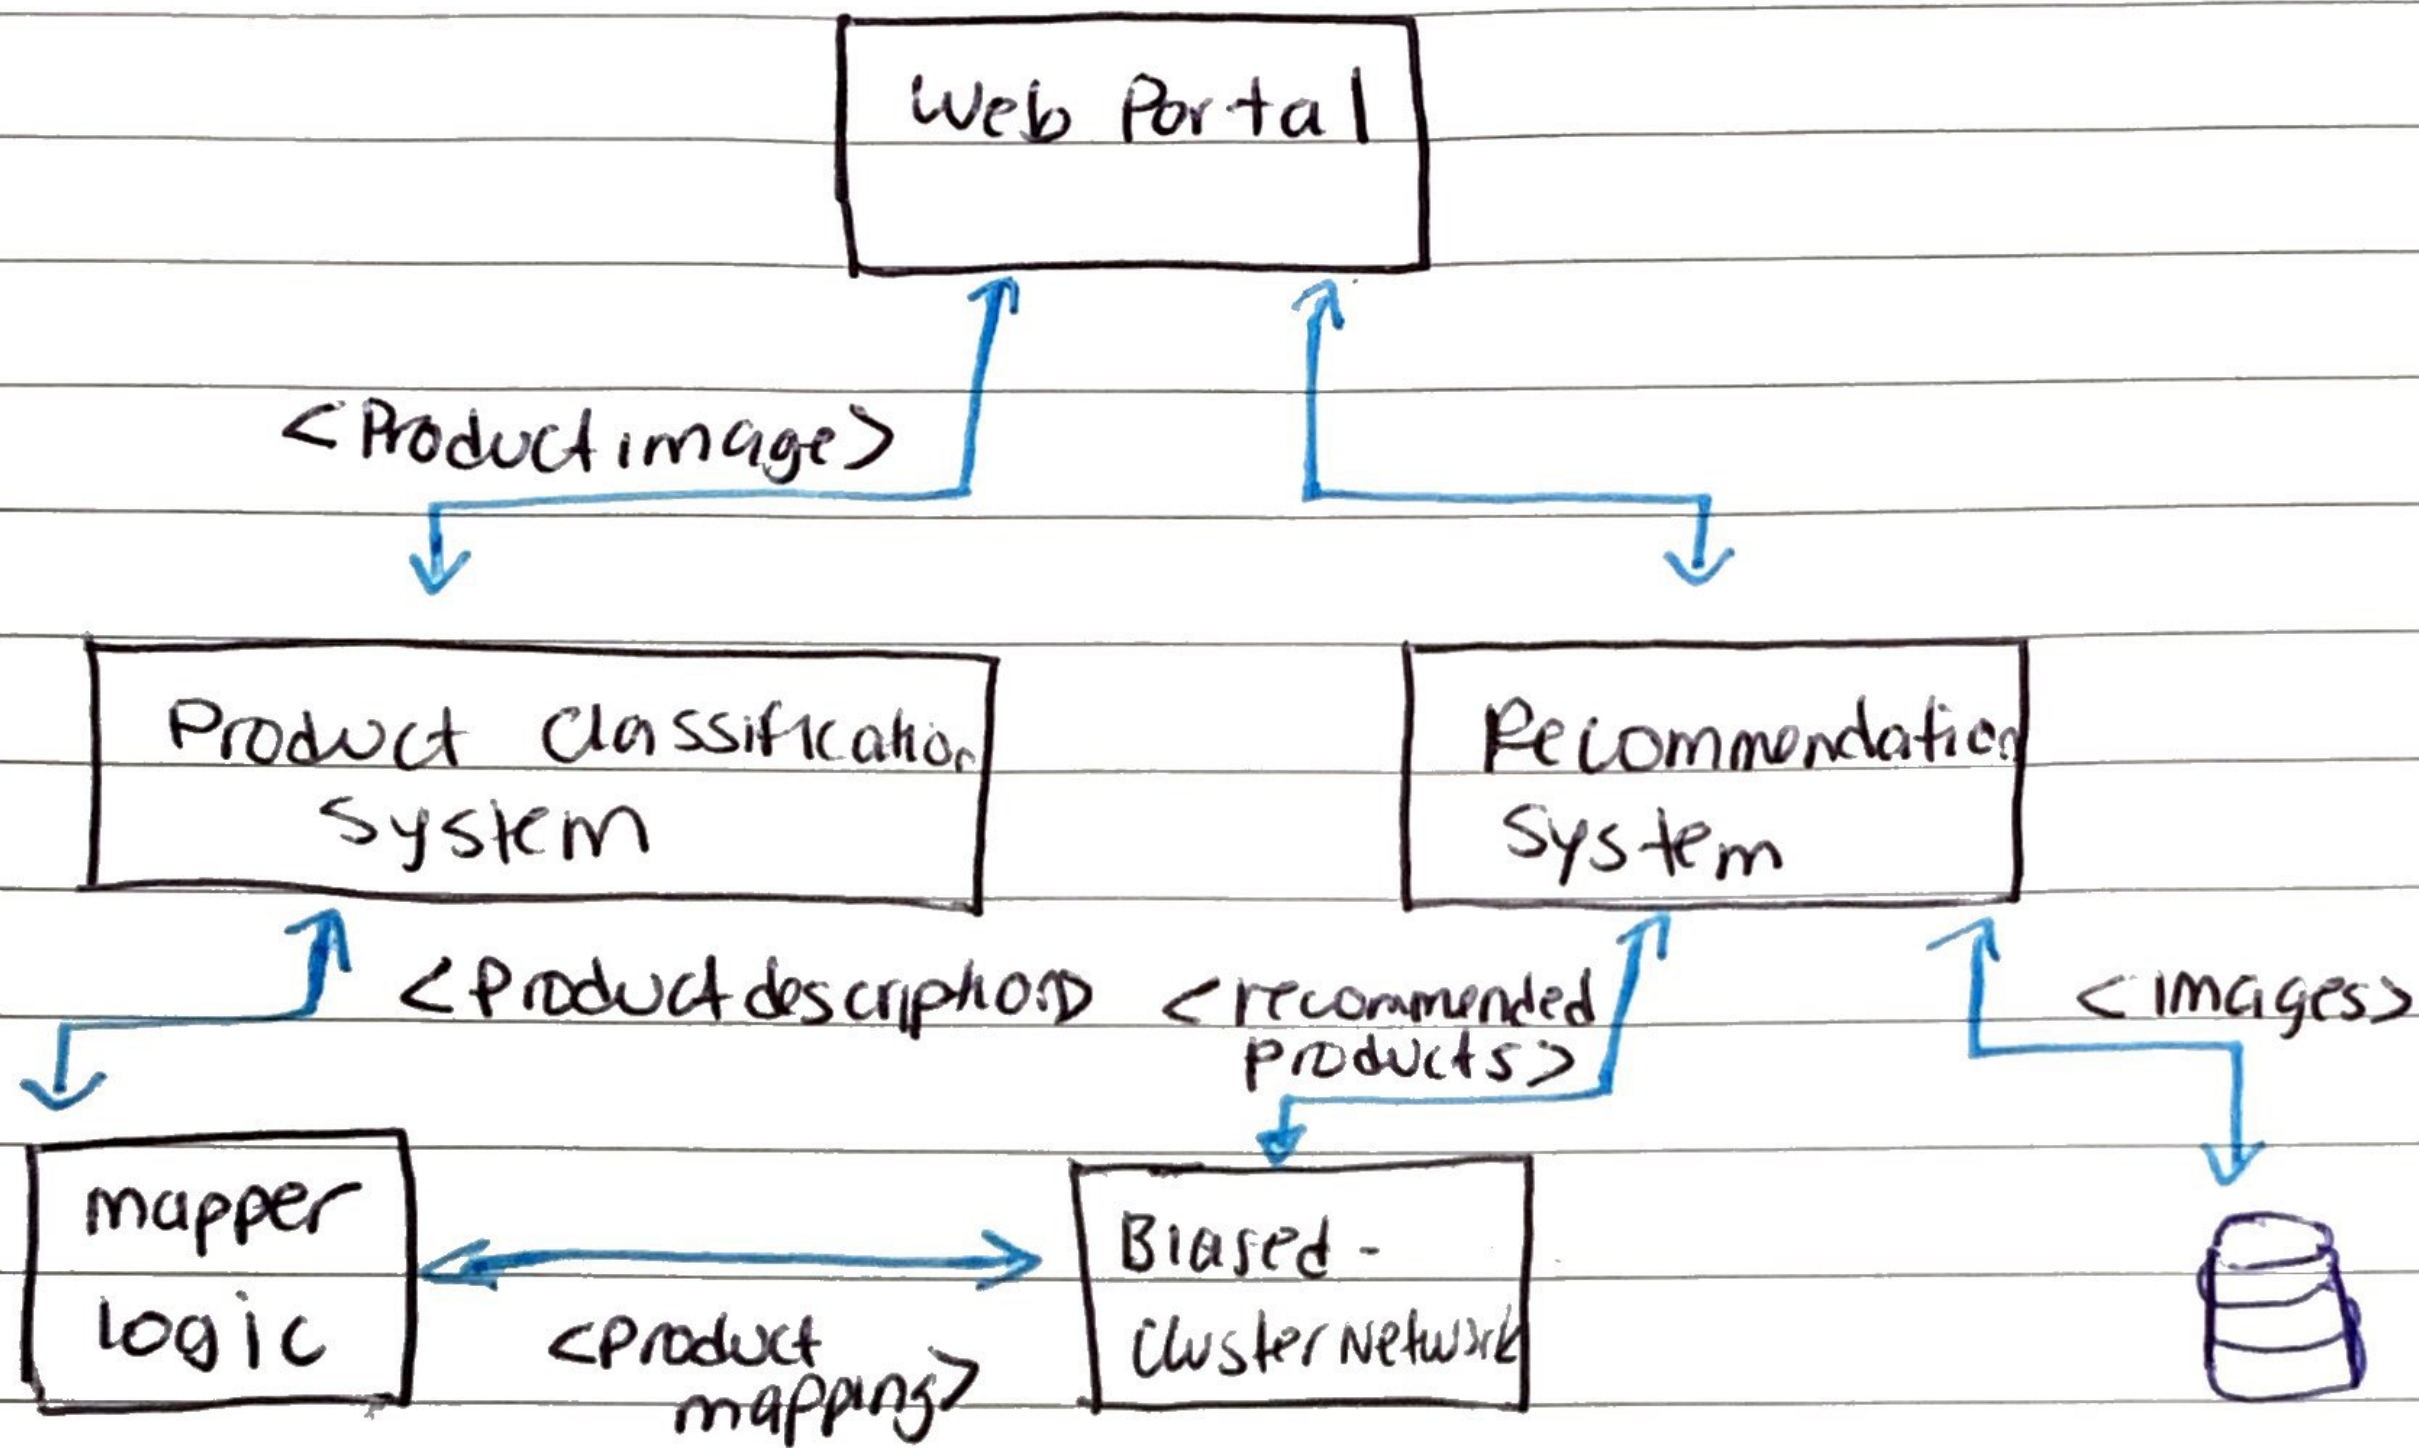 Web Portal
<Productimage>
Product Classification
System
Recommendation
System
<Productdescription>
<recommended
products>
<images>
mapper
logic
<product
mapping>
Biased-
Cluster Network